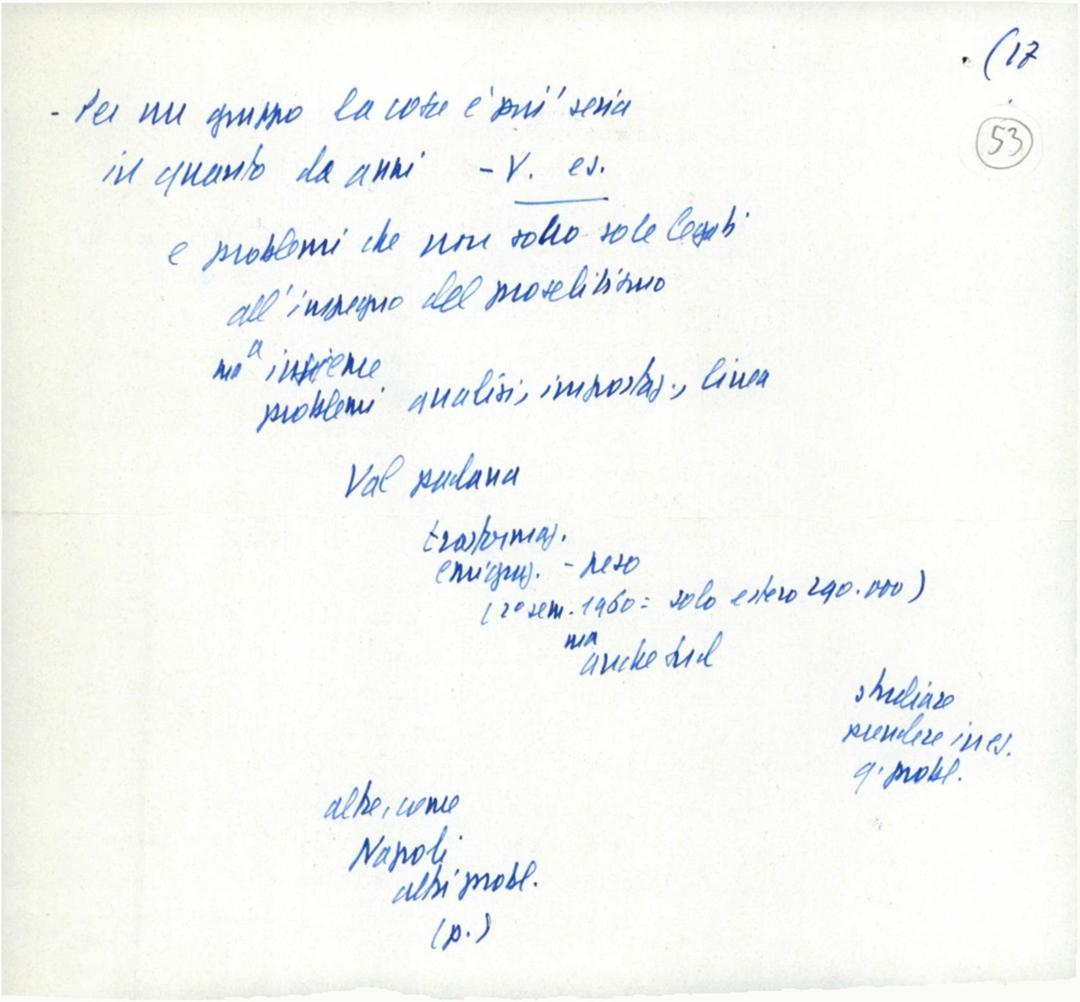 (17
53
- Per un gruppo la cosa è più seria
in quanto da anni - V. es.
e problemi che non sono solo legati
all'impegno del proselitismo
ma insieme
problemi analisi, impostaz., linea
Val padana
trasformaz.
emigraz. - peso
(2° sem. 1960 = solo estero 290.000)
ma
anche sud
studiare
prendere in es.
q. probl.
altre, come
Napoli
altri probl.
(p.)